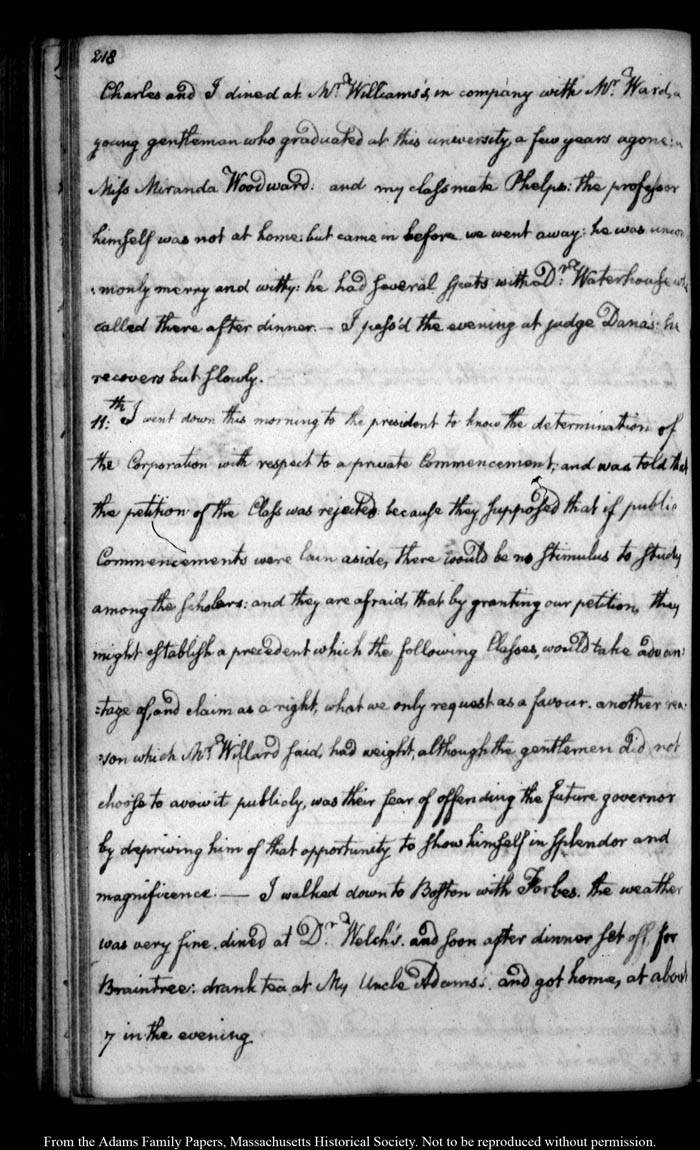 218
Charles and I dined at Mr. Williams's, in company with Mr. Ward, a
young gentleman who graduated at this university, a few years agone:
Miss Miranda Woodward: and my classmate Phelps: the professor
himself was not at home: but came in before we went away: he was uncom
:monly merry and witty: he had several spats with Dr. Waterhouse who
called there after dinner. — I pass'd the evening at judge Dana's: he
recovers but slowly.
11:th I went down this morning to the president to know the determination of
the Corporation with respect to a private Commencement; and was told that
the petition of the Class was rejected because they supposed that if public
Commencements were lain aside, there would be no stimulus to study
among the scholars: and they are afraid, that by granting our petition, they
might establish a precedent which the following Classes, would take advan:
:tage of, and claim as a right, what we only request as a favour. another rea:
:son which Mr. Willard said, had weight, although the gentlemen did not
choose to avow it publicly, was their fear of offending the future governor
by depriving him of that opportunity to show himself in splendor and
magnificence. — I walked down to Boston with Forbes. the weather
was very fine. dined at Dr. Welch's. and soon after dinner set off, for
Braintree: drank tea at My Uncle Adams's. and got home, at about
7 in the evening
From the Adams Family Papers, Massachusetts Historical Society. Not to be reproduced without permission.